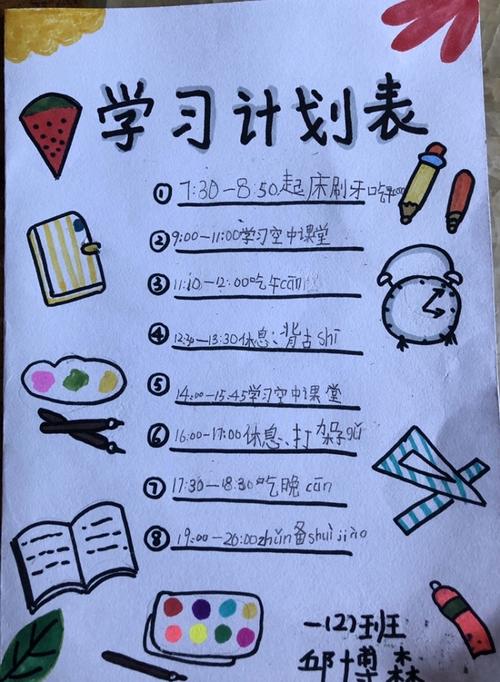 学习计划表
① 7:30—8:50起床刷牙吃早cān
② 9:00—11:00学习空中课堂
③ 11:10—12:00吃午cān
④ 12:30—13:30休息、背古shī
⑤ 14:00—15:45学习空中课堂
⑥ 16:00—17:00休息、打架子gǔ
⑦ 17:30—18:30吃晚cān
⑧ 19:00—20:00zhǔn备shuìjiào
一(2)班
邱博森